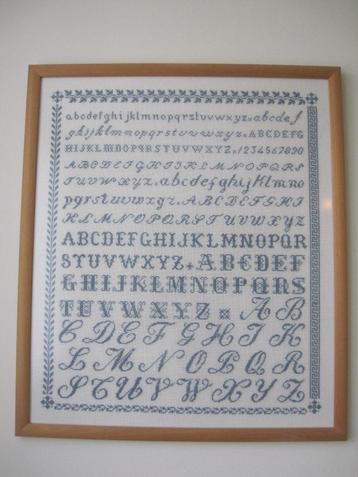 abcdefghijklmnopqrstuvwxyz.abcdef
ghijklmnopqrstuvwxyz.ABCDEFG
HIJKLMNOPQRSTUVWXYZ.1234567890
ABCDEFGHIJKLMNOPQRS
TUVWXYZ.abcdefghijklmno
pqrstuvwxyz.ABCDEFGHI
KLMNOPQRSTUVWXYZ
ABCDEFGHIJKLMNOPQR
STUVWXYZ.ABCDEF
GHIJKLMNOPQRS
TUVWXYZ AB
CDEFGHIK
LMNOPQR
STUVWXYZ